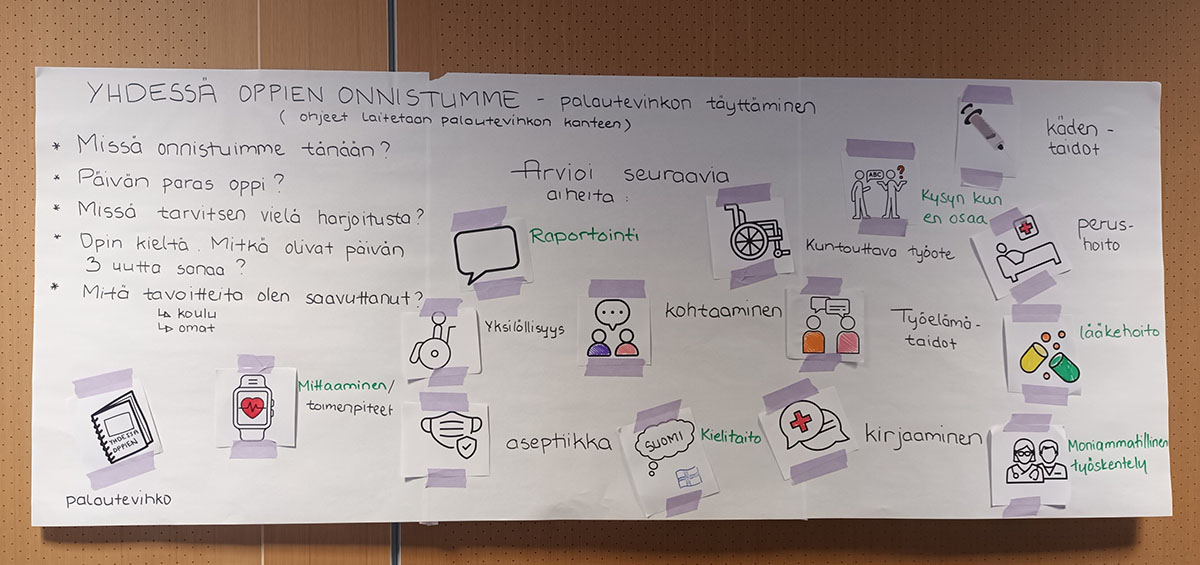 YHDESSÄ OPPIEN ONNISTUMME - palautevihkon täyttäminen
(ohjeet laitetaan palautevihkon kanteen)
* Missä onnistuimme tänään?
* Päivän paras oppi?
* Missä tarvitsen vielä harjoitusta?
* Opin kieltä. Mitkä olivat päivän
3 uutta sanaa?
* Mitä tavoitteita olen saavuttanut?
↳ koulu
↳ omat
YHDESSÄ
OPPIEN
palautevihko
Mittaaminen/
toimenpiteet
Arvioi seuraavia
aiheita:
Raportointi
Kuntouttava työote
ABC
?
Kysyn kun
en osaa
käden-
taidot
perus-
hoito
Yksilöllisyys
kohtaaminen
Työelämä-
taidot
lääkehoito
aseptiikka
SUOMI
Kielitaito
kirjaaminen
Moniammatillinen
työskentely